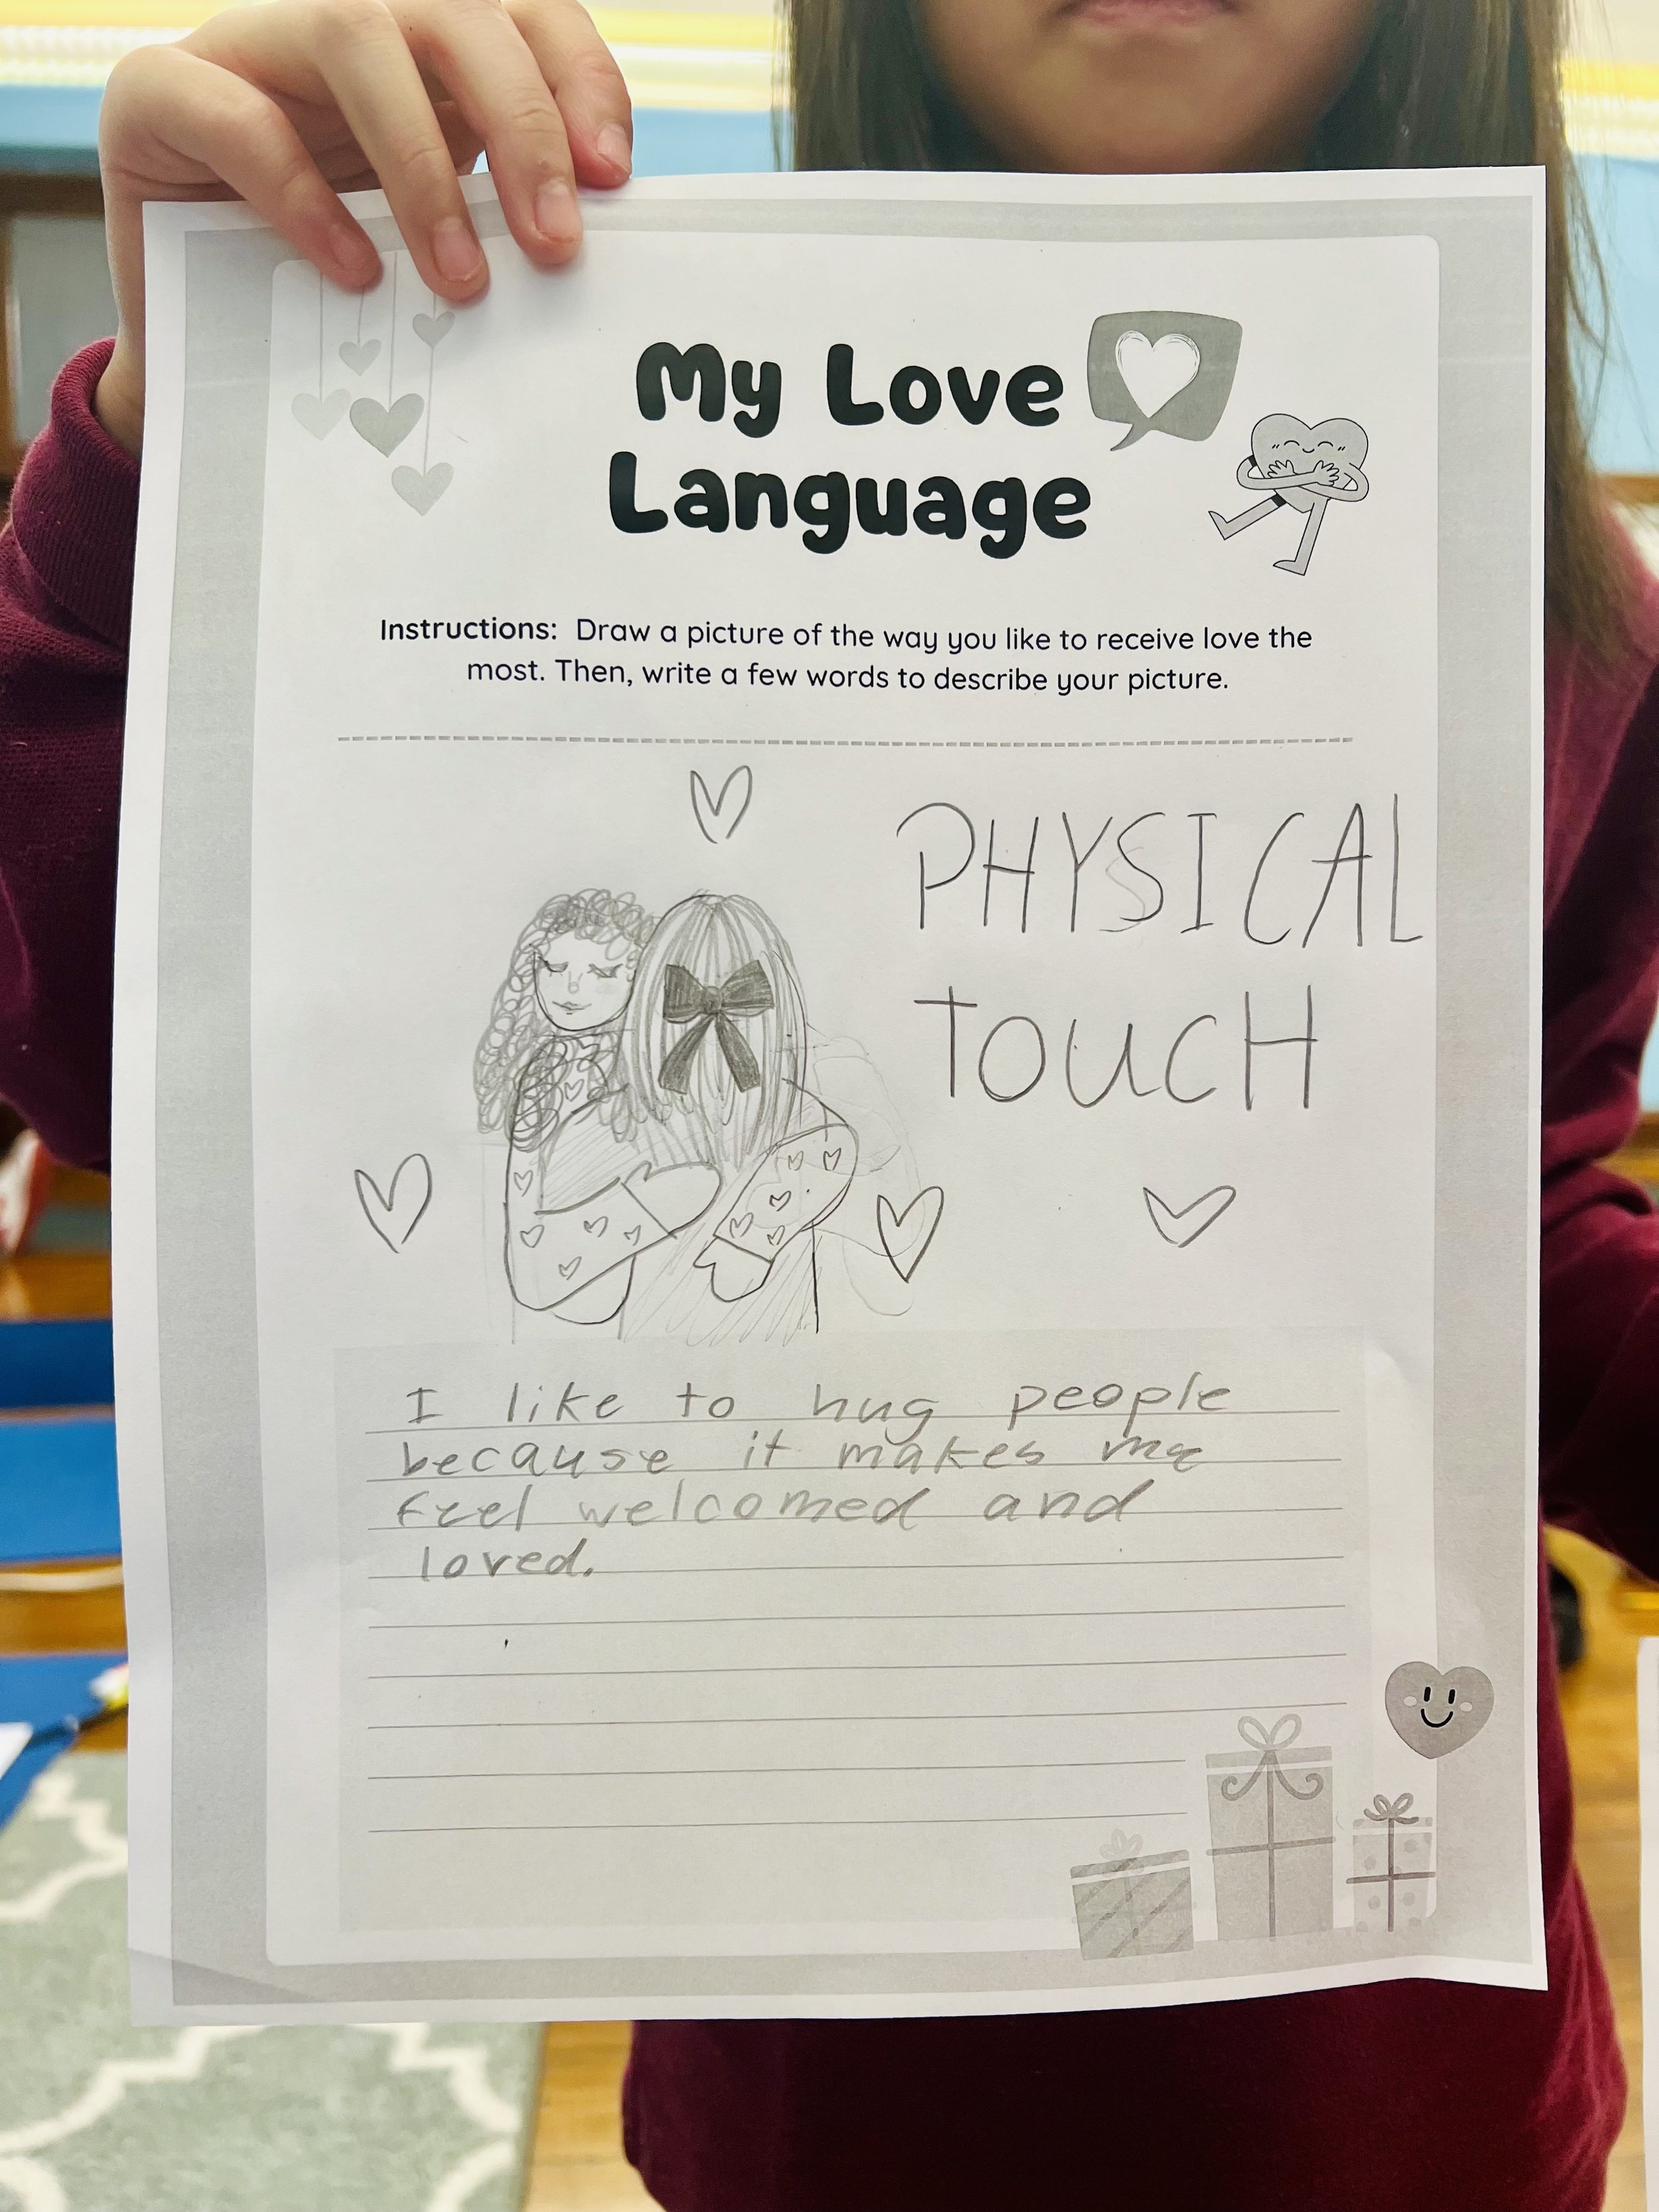 My Love
Language
Instructions: Draw a picture of the way you like to receive love the
most. Then, write a few words to describe your picture.
PHYSICAL
TOUCH
I like to hug people
because it makes me
feel welcomed and
loved.